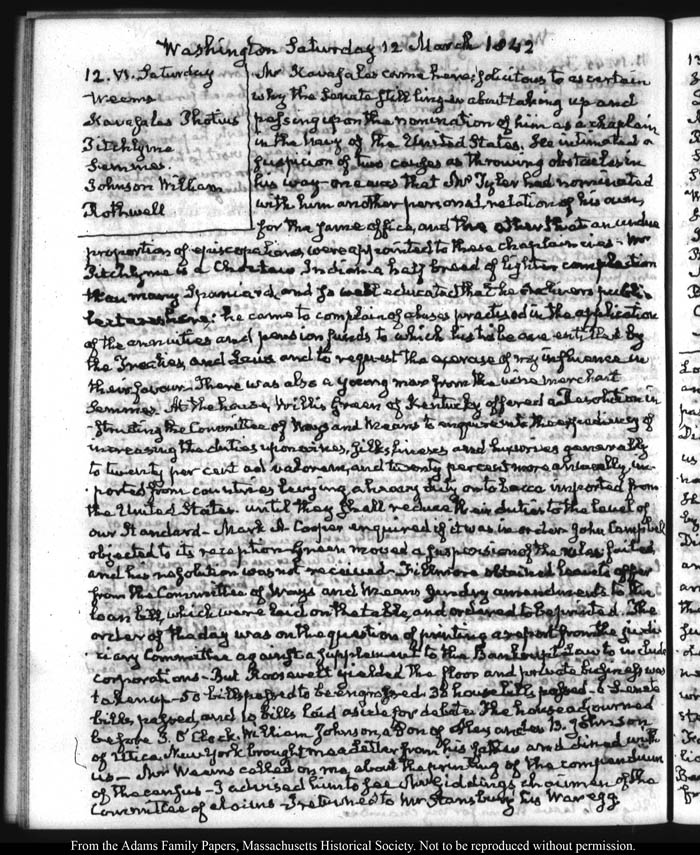 Washington Saturday 12 March 1842
12. VI. Saturday
Weems
Kavasales Photius
Pitchlynn
Semmes.
Johnson William
Rothwell
Mr Kavasales came here, solicitous to ascertain
why the Senate still linger about taking up and
passing upon the nomination of him as a chaplain
in the Navy of the United States. He intimated a
suspicion of two causes as throwing obstacles in
his way—one was that Mr Tyler had nominated
with him another personal relation of his own,
for the same office, and the other that an undue
proportion of episcopalians were appointed to these chaplaincies—Mr
Pitchlynn is a Choctaw Indian a half breed of lighter complexion
than many Spaniards, and so well educated that he delivers public
lectures here; he came to complain of abuses practised in the application
of the annuities and pension funds to which his tribe are entitled by
the Treaties, and Laws and to request the exercise of my influence in
their favour. There was also a young man from the wine merchant
Semmes. At the house, Willis Green of Kentucky offered a Resolution in
structing the Committee of Ways and Means to enquire into the expediency of
increasing the duties upon wines, silks, lineses and luxuries generally
to twenty per cent ad valorem, and twenty per cent more annually, im-
ported from countries levying a heavy duty on tobacco imported from
the United States until they shall reduce their duties to the level of
our Standard—Mark A. Cooper enquired if it was in order John Campbell
objected to its reception—Green moved a suspension of the rules failed
and his resolution was not received—Fillmore obtained leave to offer
from the Committee of Ways and Means sundry amendments to the
loan bill, which were laid on the table, and ordered to be printed. The
order of the day was on the question of printing a report from the judi
ciary Committee against a supplement to the Bankrupt Law to include
corporations—But Roosevelt yielded the floor and private business was
taken up—50 bills passed to be engrossed. 38 house bills passed—6 Senate
bills passed, and 10 bills laid aside for debate. The house adjourned
before 3. O'Clock. William Johnson, a Son of Alexander B. Johnson
of Utica, New York brought me a Letter from his father and dined with
us—Mr Weems called on me, about the printing of the compendium
of the census—I advised him to see Mr Giddings chairman of the
Committee of claims—I returned to Mr Stansbury his
From the Adams Family Papers, Massachusetts Historical Society. Not to be reproduced without permission.